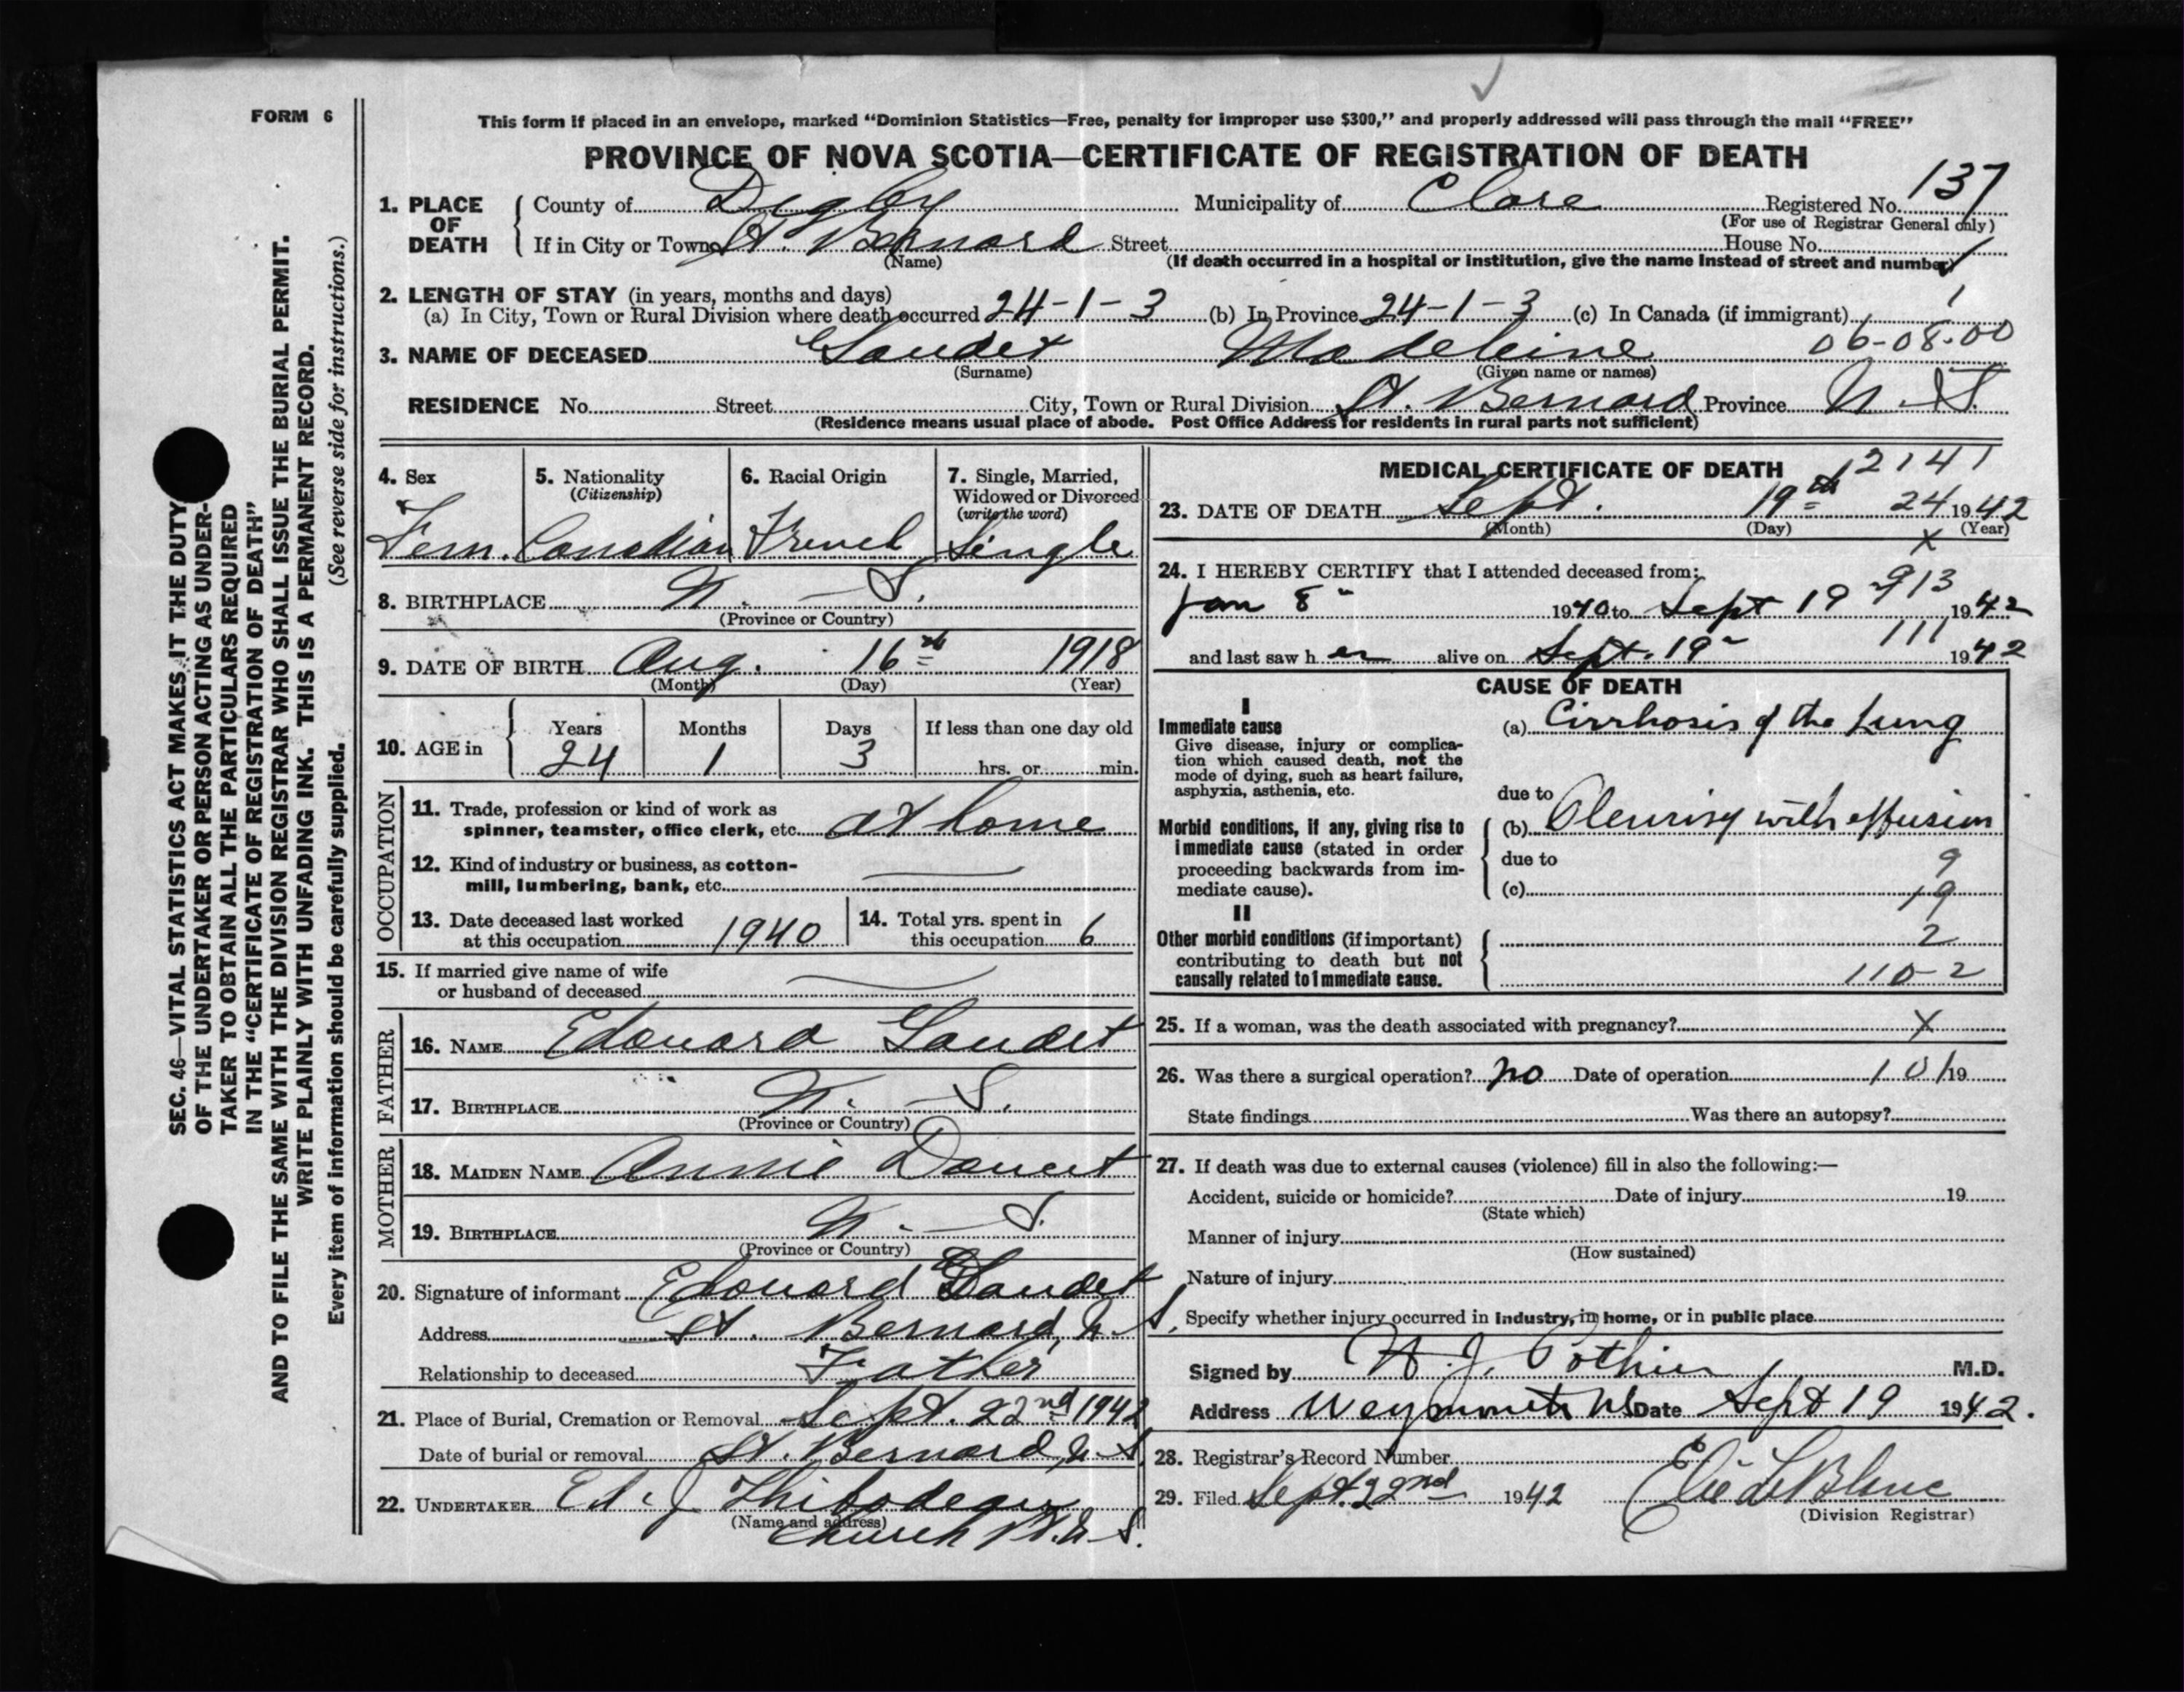 FORM 6
This form if placed in an envelope, marked "Dominion Statistics—Free, penalty for improper use $300," and properly addressed will pass through the mail "FREE"
PROVINCE OF NOVA SCOTIA—CERTIFICATE OF REGISTRATION OF DEATH
137
1. PLACE OF DEATH County of Digby Municipality of Clare Registered No.
(For use of Registrar General only)
If in City or Town St. Bernard Street House No.
(Name) (If death occurred in a hospital or institution, give the name instead of street and number)
2. LENGTH OF STAY (in years, months and days)
(a) In City, Town or Rural Division where death occurred 24-1-3 (b) In Province 24-1-3 (c) In Canada (if immigrant)
3. NAME OF DECEASED Gaudet Madeleine 06-08-00
(Surname) (Given name or names)
RESIDENCE No. Street City, Town or Rural Division St. Bernard Province N.S.
(Residence means usual place of abode. Post Office Address for residents in rural parts not sufficient)
4. Sex Fem.
5. Nationality (Citizenship) Canadian
6. Racial Origin French
7. Single, Married, Widowed or Divorced (write the word) Single
8. BIRTHPLACE N. S.
(Province or Country)
9. DATE OF BIRTH Aug. 16th 1918
(Month) (Day) (Year)
10. AGE in Years 24 Months 1 Days 3 If less than one day old hrs. or min.
OCCUPATION
11. Trade, profession or kind of work as spinner, teamster, office clerk, etc. at home
12. Kind of industry or business, as cotton-mill, lumbering, bank, etc.
13. Date deceased last worked at this occupation 1940
14. Total yrs. spent in this occupation 6
15. If married give name of wife or husband of deceased
FATHER
16. NAME Edouard Gaudet
17. BIRTHPLACE N. S.
(Province or Country)
MOTHER
18. MAIDEN NAME Annie Doucet
19. BIRTHPLACE N. S.
(Province or Country)
20. Signature of informant Edouard Gaudet
Address St. Bernard, N. S.
Relationship to deceased Father
21. Place of Burial, Cremation or Removal Sept. 22nd 1942
Date of burial or removal St. Bernard, N. S.
22. UNDERTAKER Ed. J. Thibodeau
(Name and address)
Church Pt. N. S.
MEDICAL CERTIFICATE OF DEATH 12141
23. DATE OF DEATH Sept. 19th 24 1942
(Month) (Day) (Year)
x
24. I HEREBY CERTIFY that I attended deceased from:
913
Jan 8" 1940 to Sept 19 1942
111
and last saw her alive on Sept. 19" 1942
CAUSE OF DEATH
I
Immediate cause (a) Cirrhosis of the Lung
Give disease, injury or complication which caused death, not the mode of dying, such as heart failure, asphyxia, asthenia, etc.
due to
Morbid conditions, if any, giving rise to immediate cause (stated in order proceeding backwards from immediate cause).
(b) Pleurisy with effusion
due to 9
(c) 19
II
Other morbid conditions (if important) contributing to death but not causally related to immediate cause.
2
110-2
25. If a woman, was the death associated with pregnancy? X
26. Was there a surgical operation? no Date of operation 101 19
State findings Was there an autopsy?
27. If death was due to external causes (violence) fill in also the following:—
Accident, suicide or homicide? Date of injury 19
(State which)
Manner of injury
(How sustained)
Nature of injury
Specify whether injury occurred in industry, in home, or in public place
Signed by Pothier M.D.
Address Weymouth NS Date Sept 19 1942.
28. Registrar's Record Number
29. Filed Sept. 22nd 1942 Elie LeBlanc
(Division Registrar)
SEC. 46—VITAL STATISTICS ACT MAKES IT THE DUTY
OF THE UNDERTAKER OR PERSON ACTING AS UNDER-
TAKER TO OBTAIN ALL THE PARTICULARS REQUIRED
IN THE "CERTIFICATE OF REGISTRATION OF DEATH"
AND TO FILE THE SAME WITH THE DIVISION REGISTRAR WHO SHALL ISSUE THE BURIAL PERMIT.
WRITE PLAINLY WITH UNFADING INK. THIS IS A PERMANENT RECORD.
Every item of information should be carefully supplied. (See reverse side for instructions.)